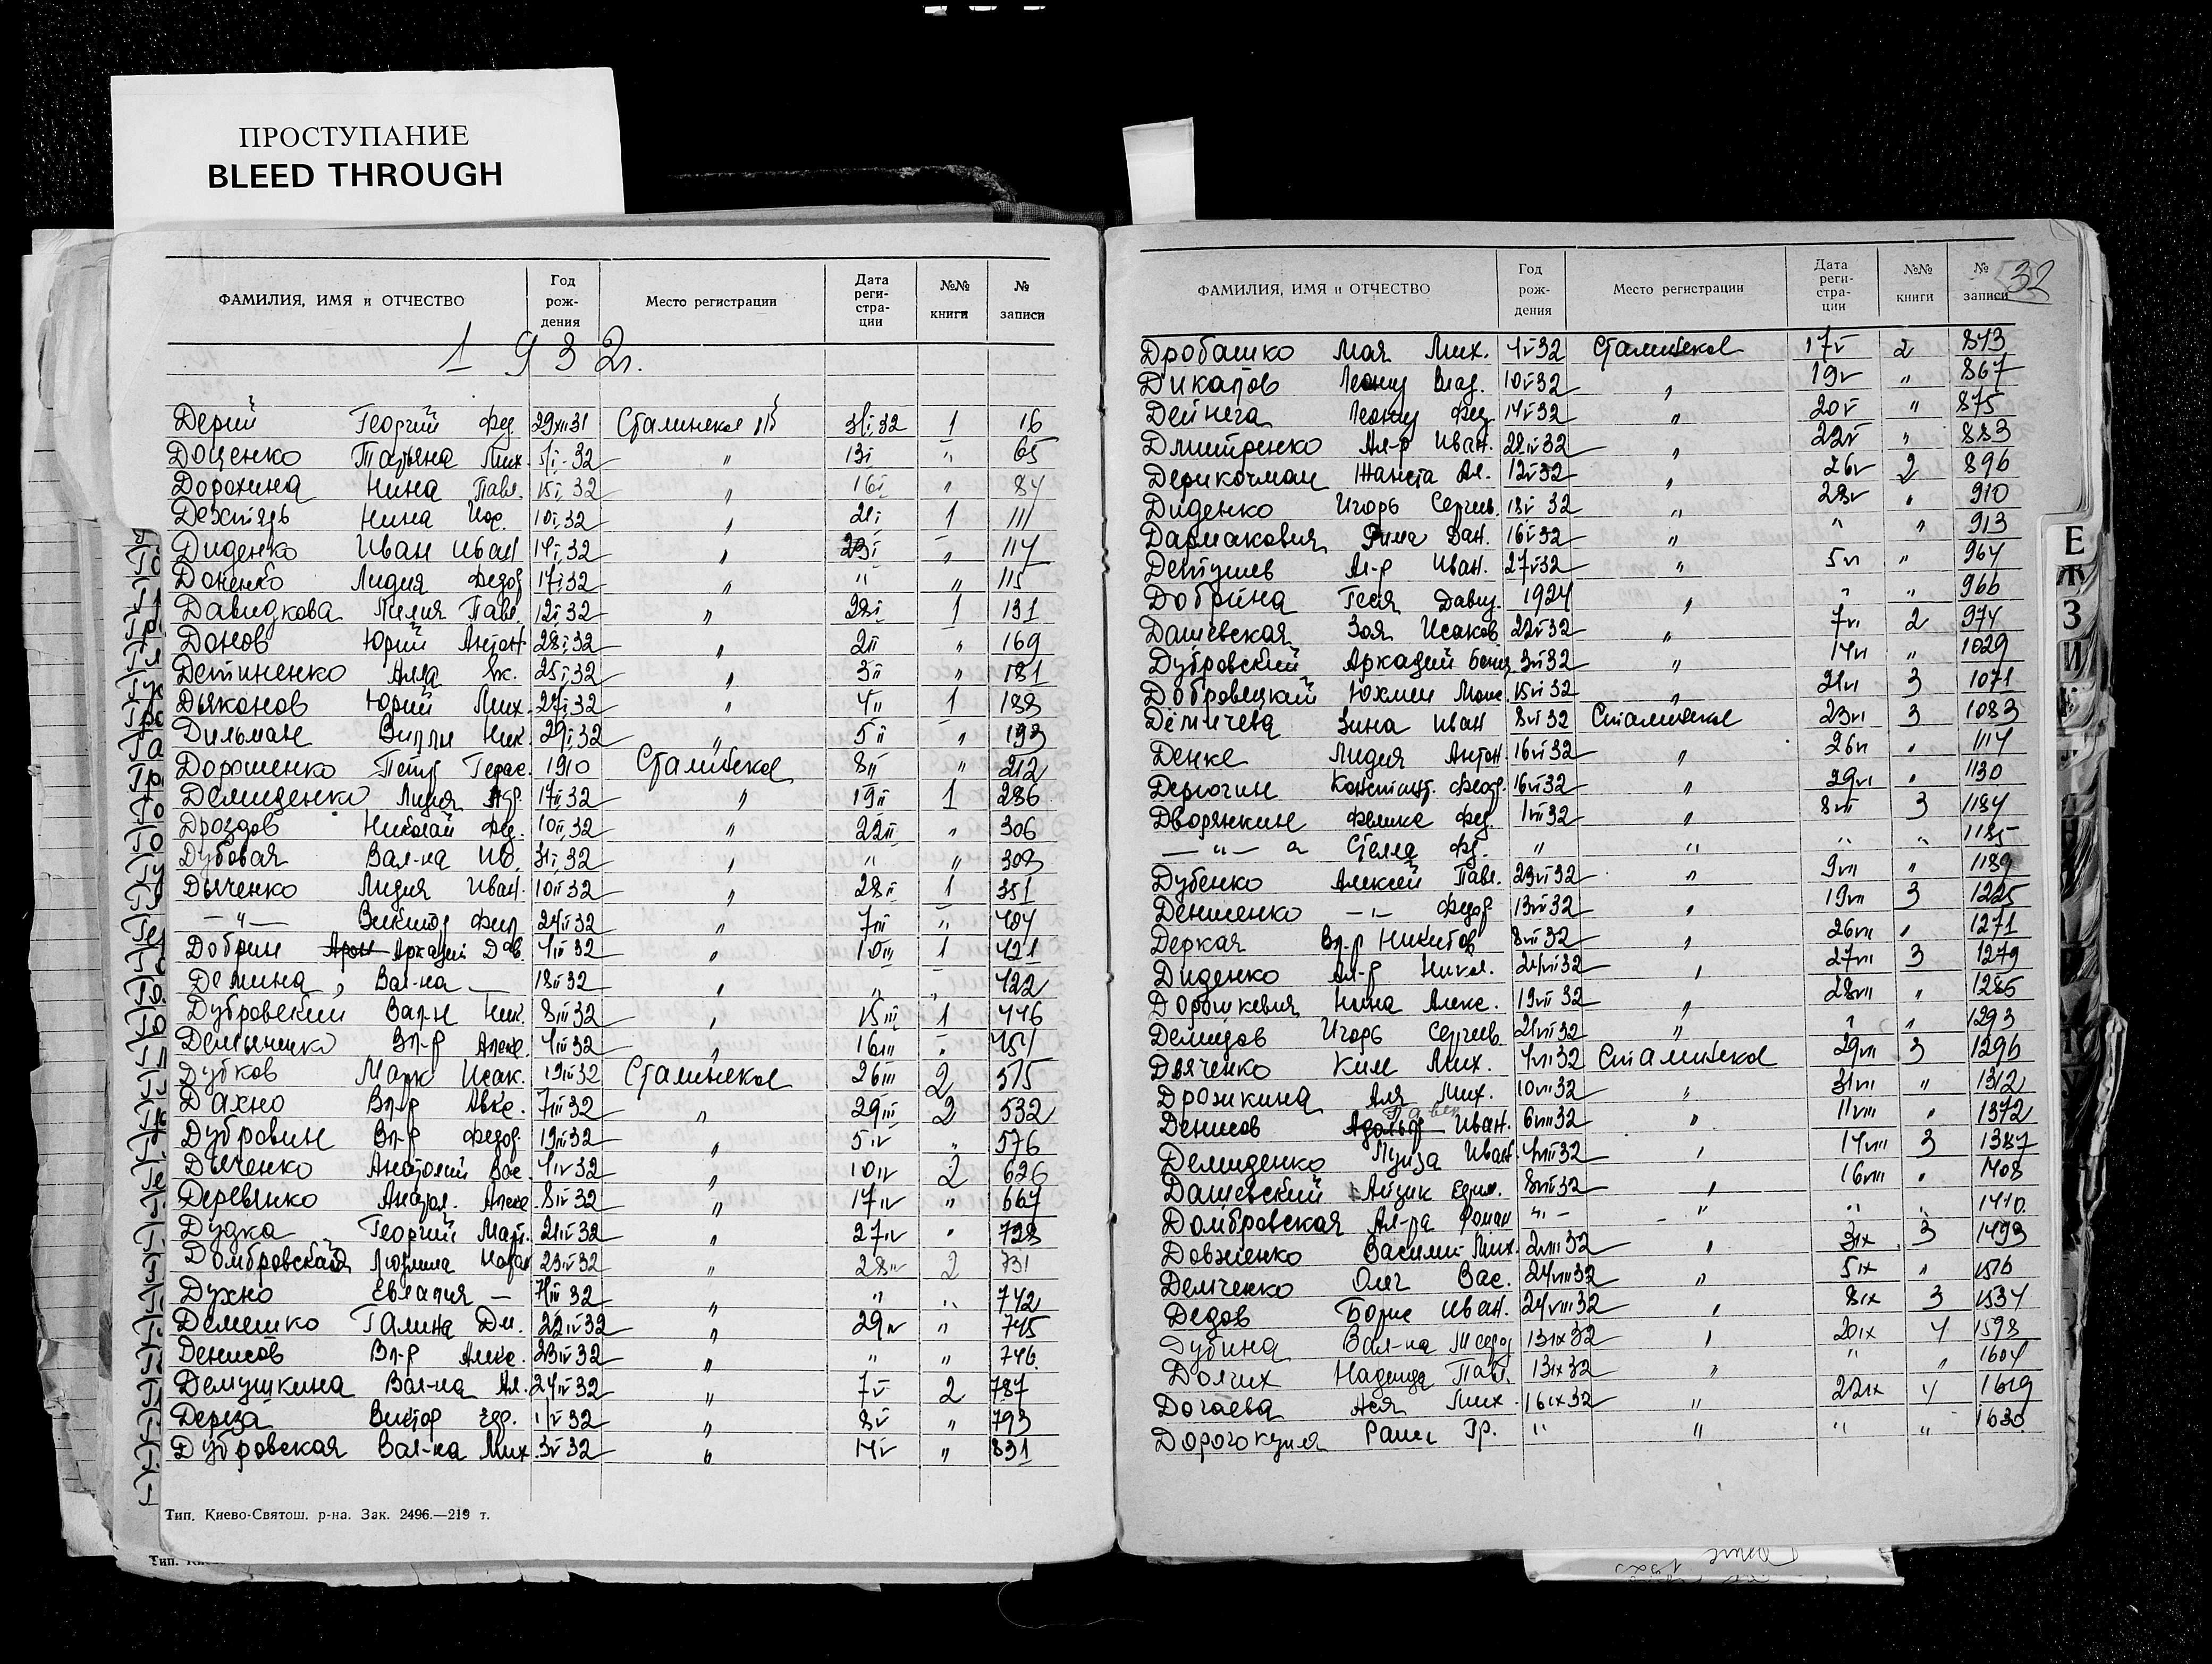 ПРОСТУПАНИЕ
BLEED THROUGH
ФАМИЛИЯ, ИМЯ и ОТЧЕСТВО Год рождения Место регистрации Дата регистрации №№ книги № записи
1932г.
Дерий Георгий Фед. 29XII31 Сталинское 3I,32 1 16
Доценко Татьяна Мих. 1I-32 " 13I " 65
Дорохина Нина Павл. 15I,32 " 16I " 84
Дехтярь Нина Иос. 10I,32 " 21I 1 111
Диденко Иван Иван 14I,32 " 23I " 114
Доненко Лидия Федор 17I,32 " " " 115
Давидкова Лилия Павл. 12I,32 " 28I 1 131
Донов Юрий Антон 28I,32 " 2II " 169
Детиненко Алла Як. 25I,32 " 3II " 181
Дьяконов Юрий Мих. 27I,32 " 4II 1 188
Дильман Вилли Ник. 29I,32 " 5II " 193
Дорошенко Петр Герас. 1910 Сталинское 8II " 212
Демиденко Лидия 17II,32 " 19II 1 286
Дроздов Николай Фед. 10II,32 " 22II " 306
Дубовая Вал-на Ив. 31I,32 " " " 309
Дьяченко Лидия Иван. 10II32 " 28II 1 351
—"— Виктор Фил 24II32 " 7III " 404
Добрин Арон Аркадий Дав. 4III32 " 10III 1 421
Демина, Вал-на — 18II32 " " " 422
Дубровский Вал-н Ник. 8III32 " 15III 1 446
Демьяненко Вл-р Алекс. 4III32 " 16III " 454
Дубков Марк Исак. 19III32 Сталинское 26III 2 515
Дахно Вл-р Авкс. 7III32 " 29III 2 532
Дубровин Вл-р Федор. 19III32 " 5IV " 576
Дьяченко Анатолий Вас. 4IV32 " 10IV 2 626
Деревянко Анатол. Алекс 8IV32 " 17IV " 667
Дудка Георгий 21IV32 " 27IV " 728
Домбровская Людмила 23IV32 " 28IV 2 731
Духно Евлалия — 7III32 " " " 742
Демешко Галина Дм. 22IV32 " 29IV " 745
Денисов Вл-р Алекс. 23IV32 " " " 746
Демушкина Вал-на Ал. 24IV32 " 7V 2 787
Дереза Виктор 1V32 " 8V " 793
Дубровская Вал-на Мих. 3V32 " 14V " 831
Тип. Киево-Святош. р-на. Зак. 2496.—219 т.
ФАМИЛИЯ, ИМЯ и ОТЧЕСТВО Год рождения Место регистрации Дата регистрации №№ книги № записи
32
Дробашко Мая Мих. 4V32 Сталинское 17V 2 843
Дикапов Леонид Влад. 10V32 " 19V " 867
Дейнега Леонид Фед 14V32 " 20V " 875
Дмитренко Ал-р Иван. 22IV32 " 22V " 883
Дерикочман Жанета Ал. 12V32 " 26V 2 896
Диденко Игорь Сергеев. 18V32 " 28V " 910
Дармакович Рима Дан. 16V32 " " " 913
Детушев Ал-р Иван. 27V32 " 5VI " 964
Добрина Геся Давид. 1924 " " " 966
Дашевская Зоя Исаков 22V32 " 7VI 2 974
Дубровский Аркадий 3VI32 " 14VI " 1029
Добровецкий Юхмен Моис. 15VI32 " 21VI 3 1071
Демичева Зина Иван 8VI32 Сталинское 23VI 3 1083
Денке Лидия Антон 16VI32 " 26VI " 1114
Дерюгин Констант. Федор. 16VI32 " 29VI " 1130
Дворянкин Феликс Фед. 1VII32 " 8VII 3 1184
—"— а Стелла Фд. " " " " 1185
Дубенко Алексей Павл. 23VI32 " 9VII " 1189
Денисенко —"— Федор 13VII32 " 19VII 3 1225
Деркая Вл-р Никитов 8VII32 " 26VII " 1271
Диденко Ал-р Никол. 24VII32 " 27VII 3 1279
Дорошкевич Нина Алекс. 19VII32 " 28VII " 1286
Демидов Игорь Сергеев. 21VII32 " " " 1293
Дьяченко Ким Мих. 4VII32 Сталинское 29VII 3 1296
Дрожкина Аля Мих. 10VII32 " 31VII " 1312
Павел
Денисов Адольф Иван. 6VIII32 " 11VIII " 1372
Демиденко Луиза Иван 4VIII32 " 14VIII 3 1387
Дашевский Айзик Ефим. 8VIII32 " 16VIII " 1408
Домбровская Ал-ра Роман " — " " " 1410
Довженко Василий Мих. 2VIII32 " 3IX 3 1493
Демченко Олег Вас. 24VIII32 " 5IX " 1516
Дедов Борис Иван. 24VIII32 " 8IX 3 1534
Дубина Вал-на 13IX32 " 20IX 4 1598
Долгих Надежда Павл. 13IX32 " " " 1604
Догаева Ася Мих 16IX32 " 22IX 4 1619
Дорогокупля Раиса Гр. " " " " 1630